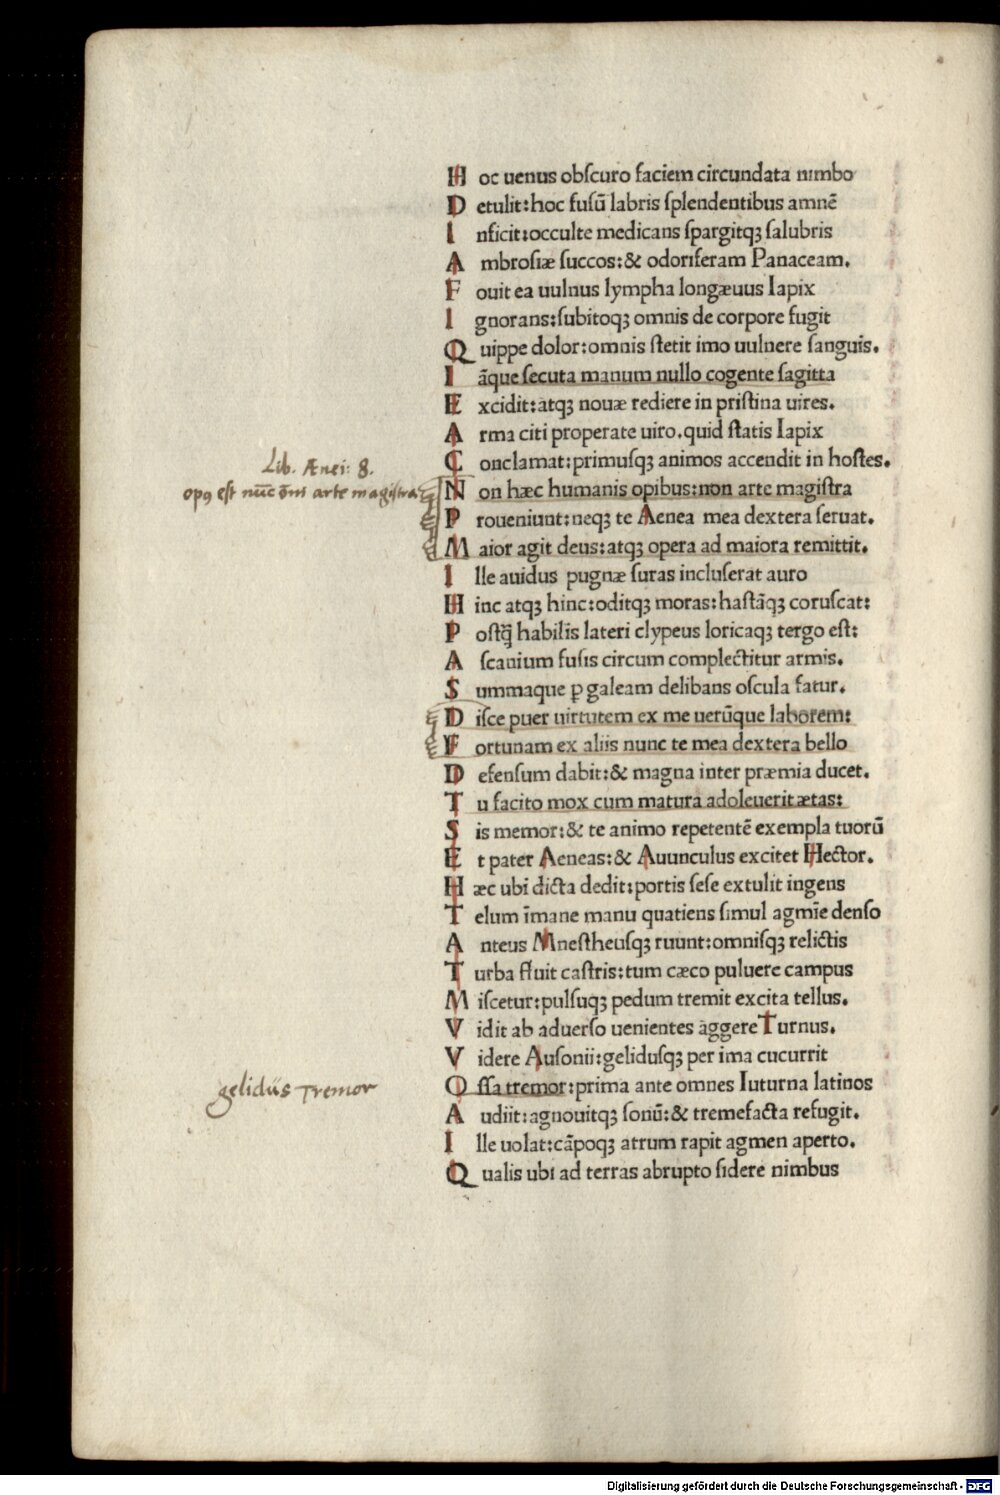 Hoc uenus obſcuro faciem circundata nimbo
Detulit: hoc fuſū labris ſplendentibus amnē
Inficit: occulte medicans ſpargitqꝫ ſalubris
Ambroſiæ ſuccos: & odoriferam Panaceam.
Fouit ea uulnus lympha longæuus Iapix
Ignorans: ſubitoqꝫ omnis de corpore fugit
Quippe dolor: omnis ſtetit imo uulnere ſanguis.
Iāque ſecuta manum nullo cogente ſagitta
Excidit: atqꝫ nouæ rediere in priſtina uires.
Arma citi properate uiro. quid ſtatis Iapix
Lib. Ænei: 8.
Conclamat: primuſqꝫ animos accendit in hoſtes.
opꝰ eſt nūc ōni arte magiſtra
Non hæc humanis opibus: non arte magiſtra
Proueniunt: neqꝫ te Aenea mea dextera ſeruat.
Maior agit deus: atqꝫ opera ad maiora remittit.
Ille auidus pugnæ ſuras incluſerat auro
Hinc atqꝫ hinc: oditqꝫ moras: haſtāqꝫ coruſcat:
Poſtꝗ̄ habilis lateri clypeus loricaqꝫ tergo eſt:
Aſcanium fuſis circum complectitur armis.
Summaque ꝑ galeam delibans oſcula fatur.
Diſce puer uirtutem ex me uerūque laborem:
Fortunam ex aliis nunc te mea dextera bello
Defenſum dabit: & magna inter præmia ducet.
Tu facito mox cum matura adoleuerit ætas:
Sis memor: & te animo repetentē exempla tuorū
Et pater Aeneas: & Auunculus excitet Hector.
Hæc ubi dicta dedit: portis ſeſe extulit ingens
Telum īmane manu quatiens ſimul agmīe denſo
Anteus Mneſtheuſqꝫ ruunt: omniſqꝫ relictis
Turba fluit caſtris: tum cæco puluere campus
Miſcetur: pulſuqꝫ pedum tremit excita tellus.
Vidit ab aduerſo uenientes aggere Turnus.
Videre Auſonii: gelidusqꝫ per ima cucurrit
gelidus Tremor
Oſſa tremor: prima ante omnes Iuturna latinos
Audiit: agnouitqꝫ ſonū: & tremefacta refugit.
Ille uolat: cāpoqꝫ atrum rapit agmen aperto.
Qualis ubi ad terras abrupto ſidere nimbus
Digitalisierung gefördert durch die Deutsche Forschungsgemeinschaft - DFG